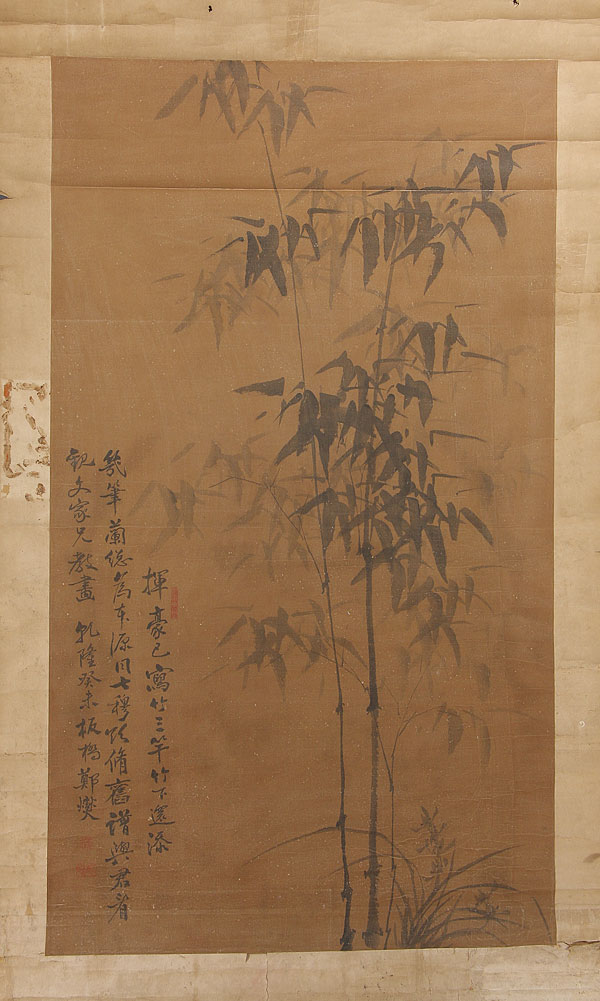 揮豪已寫竹三竿竹下還添
幾筆蘭緫為本源同七穆欲脩舊譜與君看
文家兄教畫 乾隆癸未板橋鄭燮